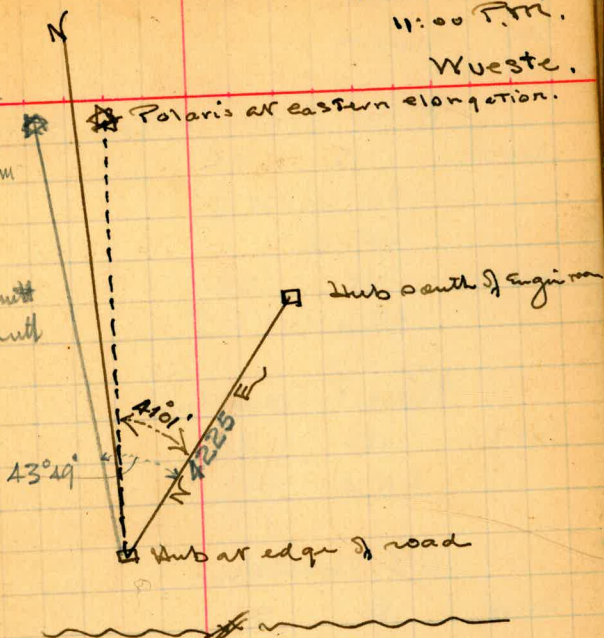 11:00 P.M.
Wueste.
N
Polaris at eastern elongation.
Hub south of Engin room
41°01'
N 4225 E
43°49'
Hub at edge of road